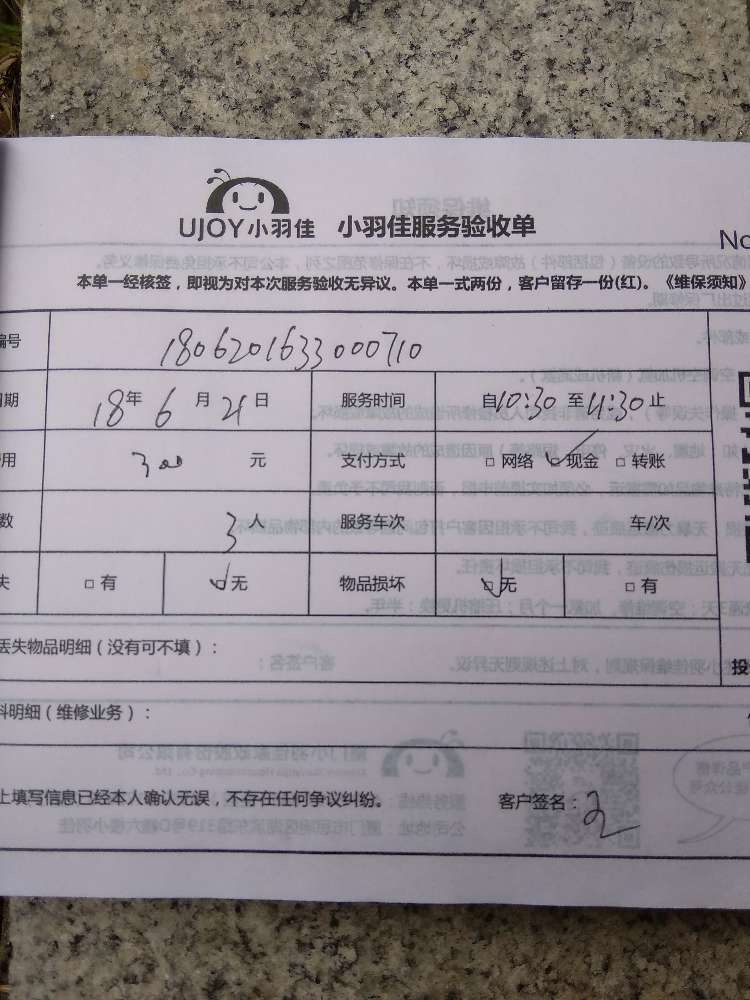 UJOY小羽佳 小羽佳服务验收单
No
本单一经核签，即视为对本次服务验收无异议。本单一式两份，客户留存一份(红)。《维保须知》
编号 1806201633000710
日期 18年6月21日 服务时间 自10:30至11:30止
费用 300元 支付方式 □网络 ☑现金 □转账
数 3人 服务车次 车/次
失 □有 ☑无 物品损坏 ☑无 □有
丢失物品明细（没有可不填）：
投
料明细（维修业务）：
上填写信息已经本人确认无误，不存在任何争议纠纷。 客户签名：